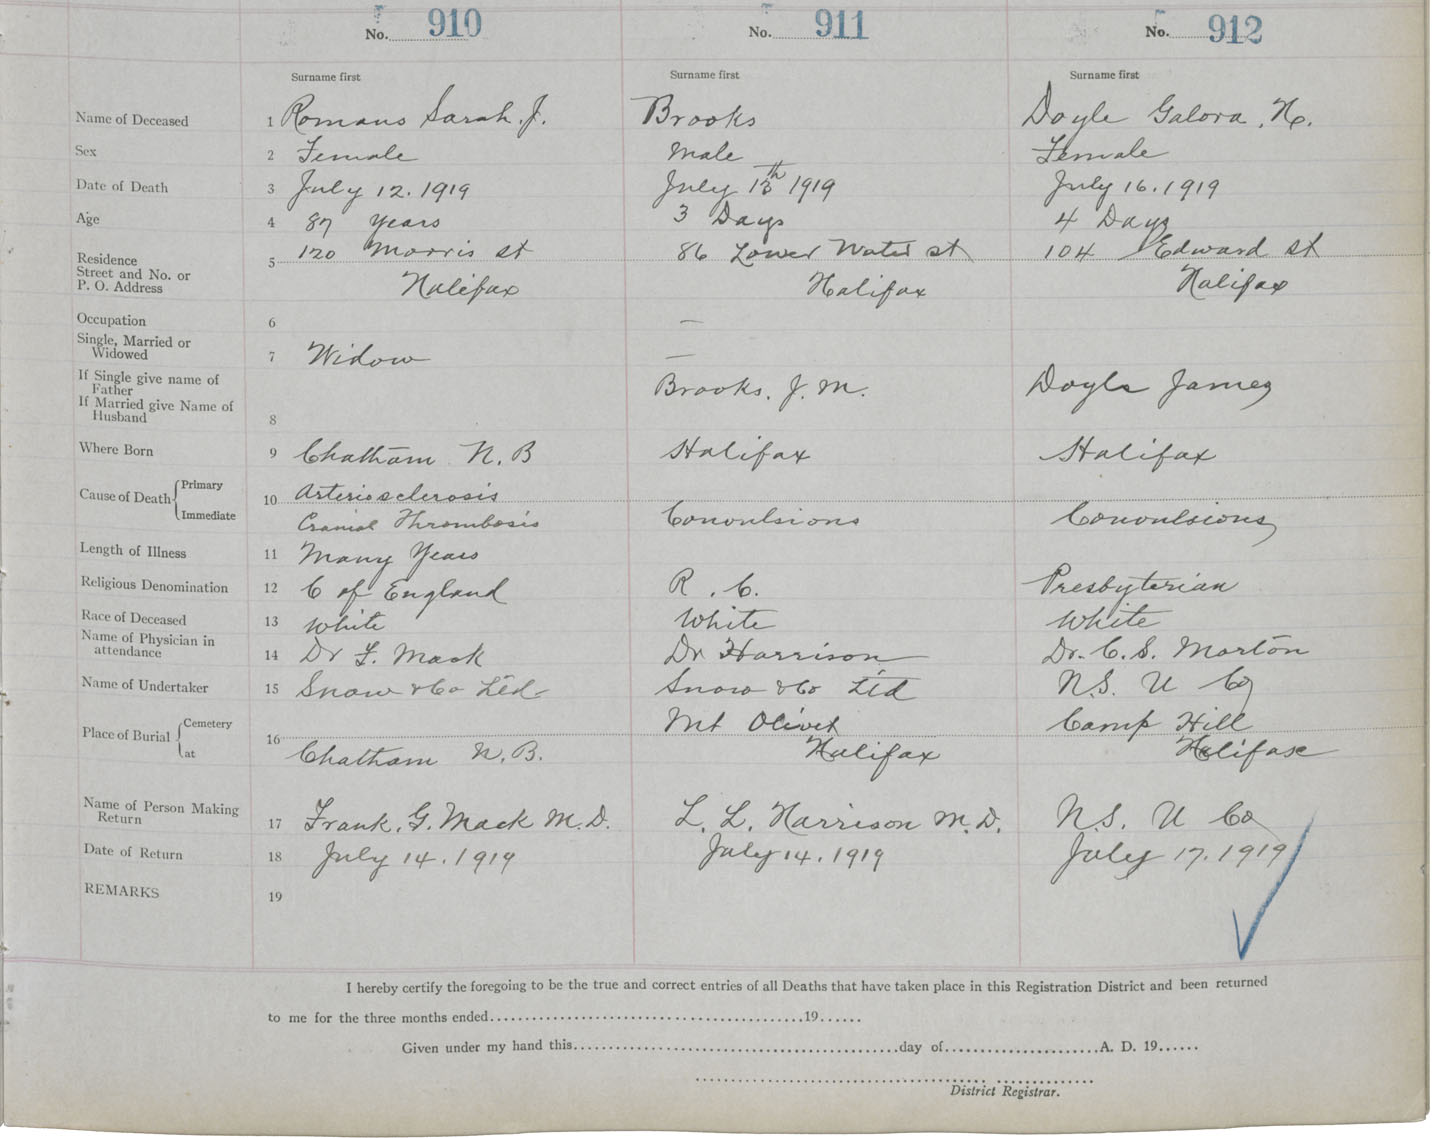 No. 910 No. 911 No. 912
Surname first Surname first Surname first
Name of Deceased 1 Romans Sarah. J. Brooks Doyle Galora. H.
Sex 2 Female Male Female
Date of Death 3 July 12. 1919 July 13th 1919 July 16. 1919
Age 4 87 years 3 Days 4 Days
Residence 5 120 Morris st 86 Lower Water st 104 Edward st
Street and No. or
P. O. Address Halifax Halifax Halifax
Occupation 6 —
Single, Married or
Widowed 7 Widow —
If Single give name of
Father Brooks, J. M. Doyle James
If Married give Name of
Husband 8
Where Born 9 Chatham N. B Halifax Halifax
Cause of Death Primary 10 Arteriosclerosis
Immediate Cranial Thrombosis Convulsions Convulsions
Length of Illness 11 Many Years
Religious Denomination 12 C of England R. C. Presbyterian
Race of Deceased 13 White White White
Name of Physician in
attendance 14 Dr F. Mack Dr Harrison Dr. C. S. Morton
Name of Undertaker 15 Snow & Co Ltd Snow & Co Ltd N.S. U Co
Place of Burial Cemetery 16 Mt Olivet Camp Hill
at Chatham N. B. Halifax Halifax
Name of Person Making
Return 17 Frank. G. Mack M.D. L. L. Harrison M.D. N.S. U Co
Date of Return 18 July 14. 1919 July 14. 1919 July 17. 1919
REMARKS 19
I hereby certify the foregoing to be the true and correct entries of all Deaths that have taken place in this Registration District and been returned
to me for the three months ended........................................19......
Given under my hand this..........................................day of....................A. D. 19......
District Registrar.